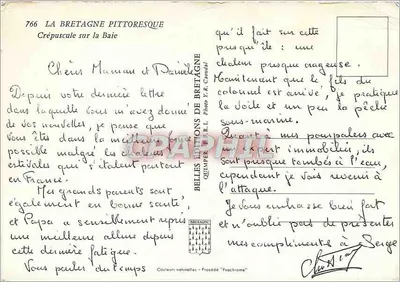 766 LA BRETAGNE PITTORESQUE
Crépuscule sur la Baie
Chère Maman et Danièle
Depuis votre dernière lettre
dans laquelle vous m'avez donné
de vos nouvelles, je pense que
vous êtes dans la meilleure
possible malgré les chaleurs
estivales qui s'étalent partout
en France.
Mes grands parents sont
également en bonne santé,
et Papa a sensiblement repris
une meilleure allure depuis
cette dernière fatigue.
Vous parler du temps
BELLES EDITIONS DE BRETAGNE
Couleurs naturelles - Procédé "Yvachrome"
qu'il fait sur cette
presqu'île : une
chaleur presque orageuse.
Maintenant que le fils du
colonel est arrivé, je pratique
la voile et un peu la pêche
sous-marine.
Quant à mes pourparlers avec
expert immobilier, ils
sont presque tombés à l'eau,
cependant je vais revenir à
l'attaque.
Je vous embrasse bien fort
et n'oublie pas de présenter
mes compliments à Serge